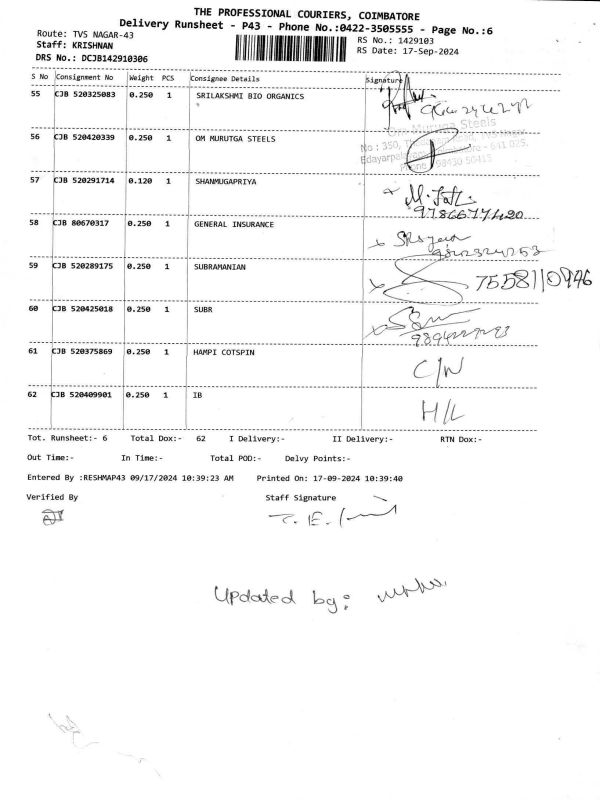 THE PROFESSIONAL COURIERS, COIMBATORE
Delivery Runsheet - P43 - Phone No.:0422-3505555 - Page No.:6
Route: TVS NAGAR-43
RS No.: 1429103
Staff: KRISHNAN
RS Date: 17-Sep-2024
DRS No.: DCJB142910306
S No Consignment No Weight PCS Consignee Details Signature
55 CJB 520325083 0.250 1 SRILAKSHMI BIO ORGANICS
56 CJB 520420339 0.250 1 OM MURUTGA STEELS
Om Muruga Steels
No.: 350,
Edayarpalayam, Coimbatore - 641 025.
Phone : 98430 50415
57 CJB 520291714 0.120 1 SHANMUGAPRIYA
58 CJB 80670317 0.250 1 GENERAL INSURANCE
59 CJB 520289175 0.250 1 SUBRAMANIAN 7558110946
60 CJB 520425018 0.250 1 SUBR
61 CJB 520375869 0.250 1 HAMPI COTSPIN C/N
62 CJB 520409901 0.250 1 IB H/L
Tot. Runsheet:- 6 Total Dox:- 62 I Delivery:- II Delivery:- RTN Dox:-
Out Time:- In Time:- Total POD:- Delvy Points:-
Entered By :RESHMAP43 09/17/2024 10:39:23 AM Printed On: 17-09-2024 10:39:40
Verified By Staff Signature
Updated by: